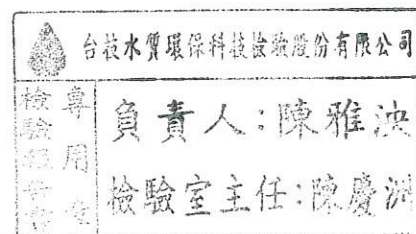 台技水質環保科技檢驗股份有限公司
專用章
檢驗報告
負責人：陳雅泱
檢驗室主任：陳慶洲